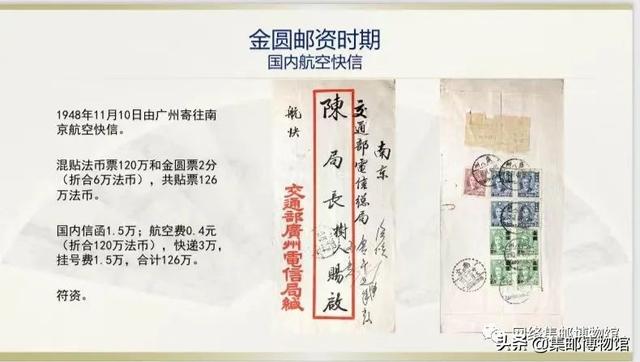 金圆邮资时期
国内航空快信
1948年11月10日由广州寄往南
京航空快信。
混贴法币票120万和金圆票2分
（折合6万法币），共贴票126
万法币。
国内信函1.5万；航空费0.4元
（折合120万法币），快递3万，
挂号费1.5万，合计126万。
符资。
南京
交通部電信總局
陳局長樹人賜啟
航快
交通部廣州電信局緘
网络集邮博物馆
头条@集邮博物馆